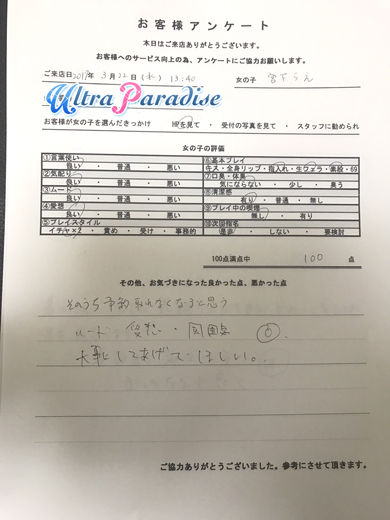 お客様アンケート
本日はご来店ありがとうございます。
お客様へのサービス向上の為、アンケートにご協力お願いします。
ご来店日 2018年 3月22日(木) 13:40 女の子
Ultra Paradise
お客様が女の子を選んだきっかけ HPを見て ・ 受付の写真を見て ・ スタッフに勧められ
女の子の評価
①言葉使い
良い ・ 普通 ・ 悪い
②気配り
良い ・ 普通 ・ 悪い
③ムード
良い ・ 普通 ・ 悪い
④愛想
良い ・ 普通 ・ 悪い
⑤プレイスタイル
イチャ×2 ・ 責め ・ 受け ・ 事務的
⑥基本プレイ
キス・全身リップ・指入れ・生フェラ・素股・69
⑦口臭・体臭
気にならない ・ 少し ・ 臭う
⑧清潔感
有り ・ 普通 ・ 無し
⑨プレイ中の喫煙
無し ・ 有り
⑩次回指名
是非 ・ しない ・ 要検討
100点満点中 100 点
その他、お気づきになった良かった点、悪かった点
そのうち予約取れなくなると思う
ムード 愛想・雰囲気
大事にしてあげてほしい。
ご協力ありがとうございました。参考にさせて頂きます。